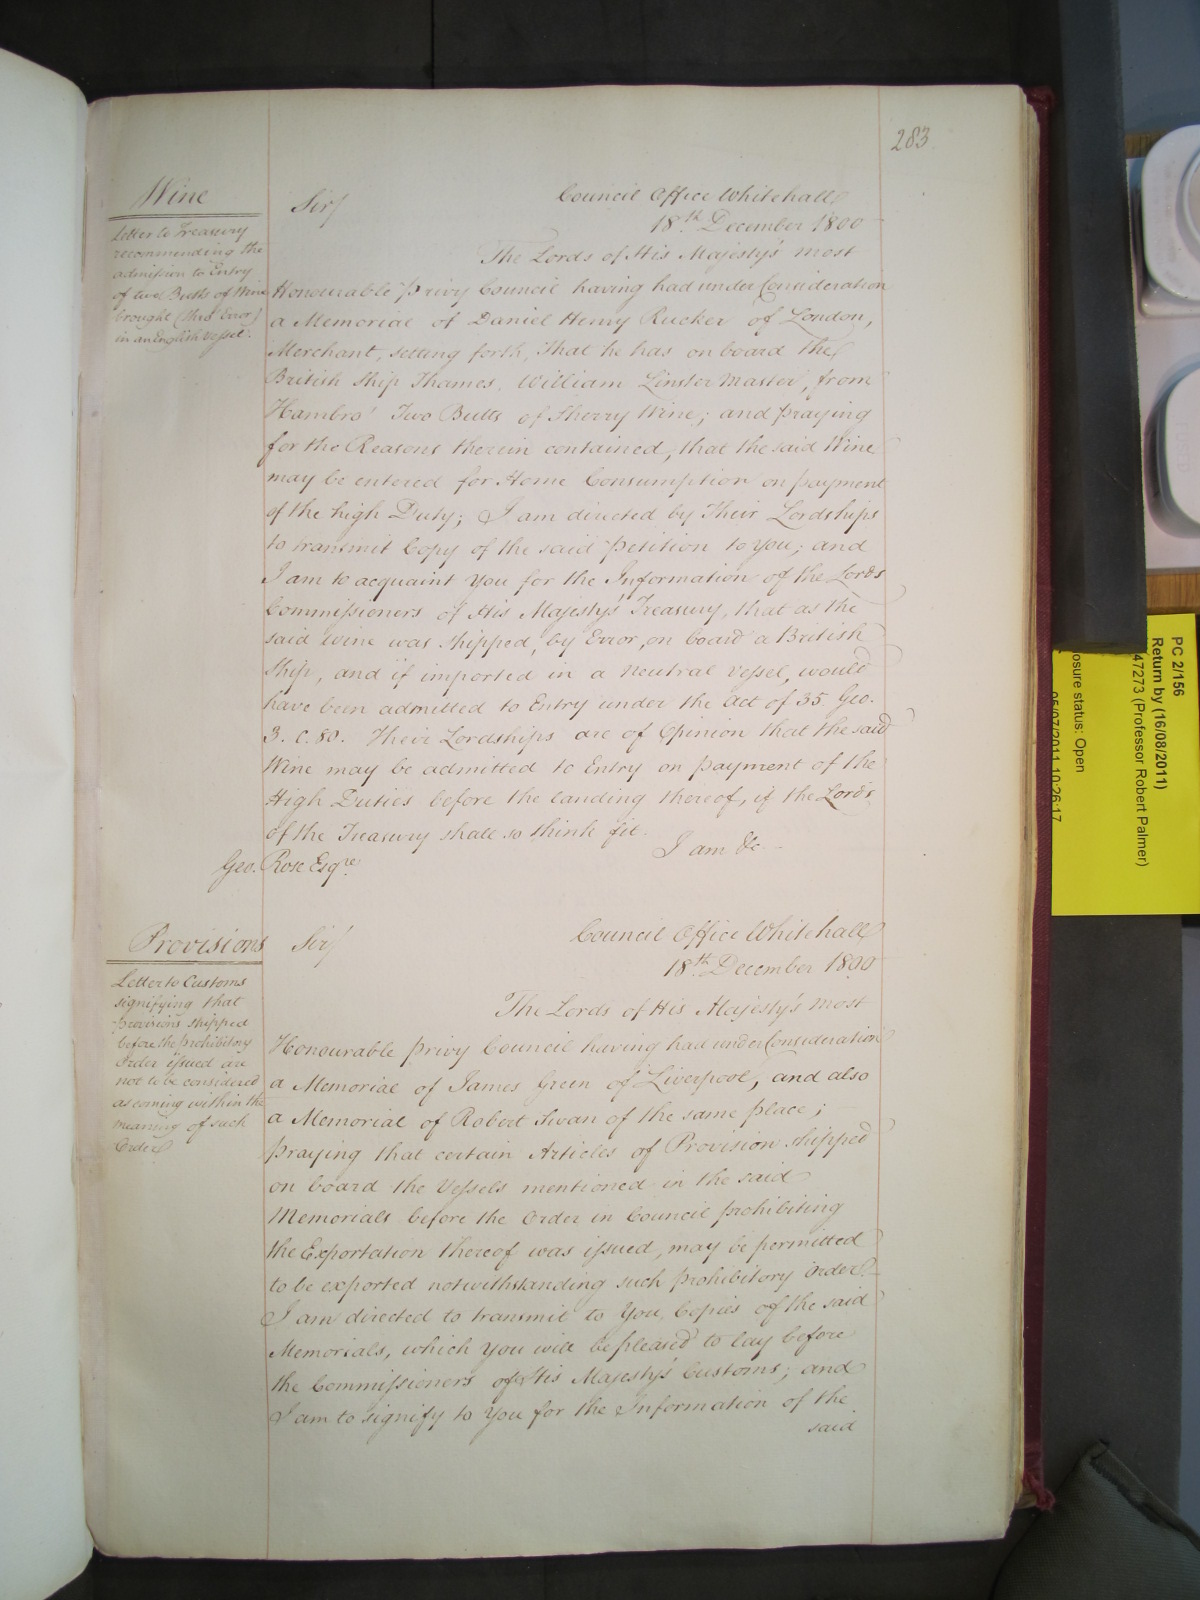 283
Wine
Letter to Treasury
recommending the
admission to Entry
of two Butts of Wine
brought (thro' Error)
in an English Vessel.
Sir/
Council Office Whitehall
18th December 1800
The Lords of His Majesty's most
Honourable Privy Council having had under Consideration
a Memorial of Daniel Henry Rucker of London,
Merchant, setting forth, that he has on board the
British Ship Thames, William Linster Master, from
Hambro' Two Butts of Sherry Wine; and praying
for the Reasons therein contained, that the said Wine
may be entered for Home Consumption on payment
of the high Duty; I am directed by Their Lordships
to transmit Copy of the said Petition to You; and
I am to acquaint You for the Information of the Lords
Commissioners of His Majesty's Treasury, that as the
said Wine was shipped, by Error, on board a British
Ship, and if imported in a Neutral Vessel, would
have been admitted to Entry under the Act of 35. Geo.
3. C. 80. Their Lordships are of Opinion that the said
Wine may be admitted to Entry on payment of the
High Duties before the landing thereof, if the Lords
of the Treasury shall so think fit.
I am &c
Geo. Rose Esqre.
Provisions
Letter to Customs
signifying that
provisions shipped
before the prohibitory
Order issued are
not to be considered
as coming within the
meaning of such
Order
Sir/
Council Office Whitehall
18th December 1800
The Lords of His Majesty's most
Honourable Privy Council having had under Consideration
a Memorial of James Green of Liverpool, and also
a Memorial of Robert Swan of the same place;
praying that certain Articles of Provision shipped
on board the Vessels mentioned in the said
Memorials before the Order in Council prohibiting
the Exportation thereof was issued, may be permitted
to be exported notwithstanding such prohibitory Order.
I am directed to transmit to You, Copies of the said
Memorials, which You will be pleased to lay before
the Commissioners of His Majesty's Customs; and
I am to signify to You for the Information of the
said
PC 2/156
Return by (16/08/2011)
47273 (Professor Robert Palmer)
osure status: Open
05/07/2011 10:26:17